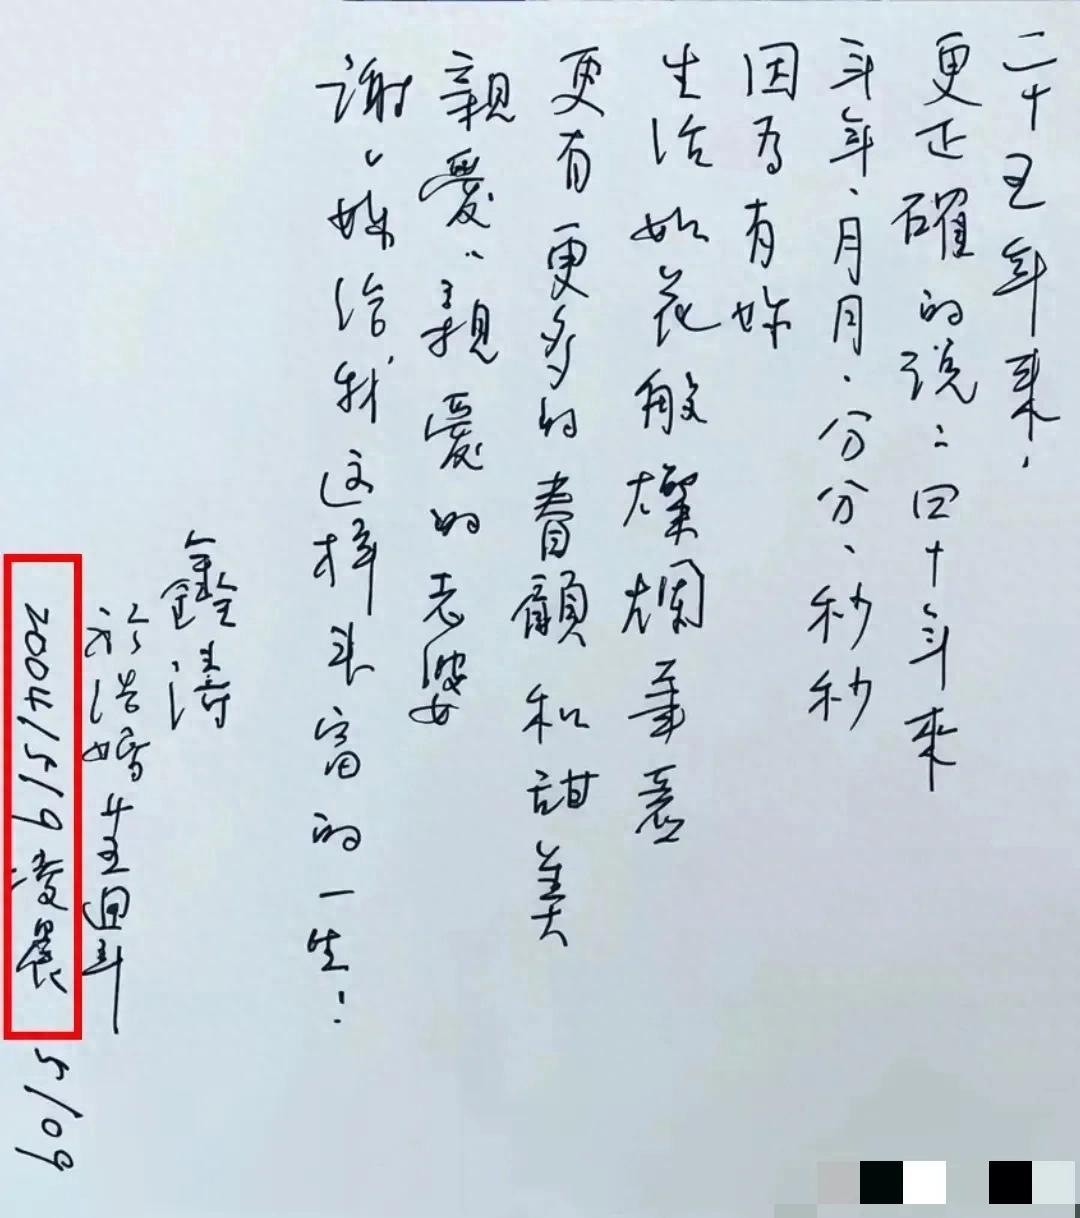 二十五年來，
更正確的說：四十年來
年年、月月、分分、秒秒
因為有妳
生活如花般燦爛
更有更多的和甜美
親愛、親愛的老婆
謝、妳給我这样丰富的一生！
鑫濤
於結婚廿五週年
2004/5/9 凌晨
5/09